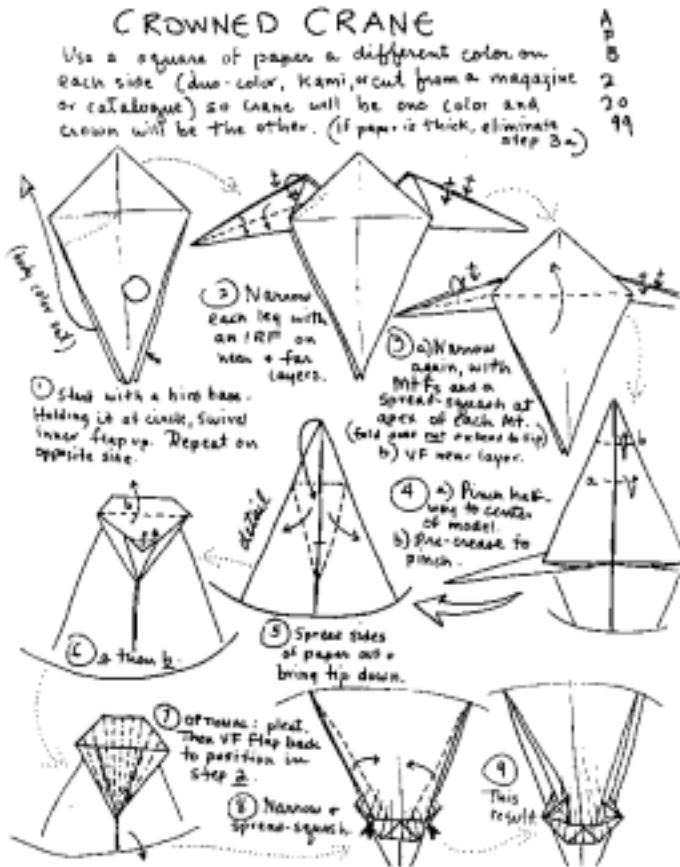 CROWNED CRANE
A
P
B
2
20
99
Use a square of paper a different color on
each side (duo-color, Kami, or cut from a magazine
or catalogue) so crane will be one color and
crown will be the other. (if paper is thick, eliminate
step 3a)
(body color out)
① Start with a bird base.
Holding it at circle, swivel
inner flap up. Repeat on
opposite side.
② Narrow
each leg with
an IRF on
near + far
layers.
③ a) Narrow
again, with
MtFs and a
spread-squash at
apex of each Mt.
(fold does not extend to tip)
b) VF near layer.
b
a
④ a) Pinch half-
way to center
of model.
b) Pre-crease to
pinch.
detail
⑤ Spread sides
of paper out +
bring tip down.
b
a
⑥ a then b.
⑦ OPTIONAL: pleat.
Then VF flap back
to position in
step 2.
⑧ Narrow +
spread-squash
⑨
This
result